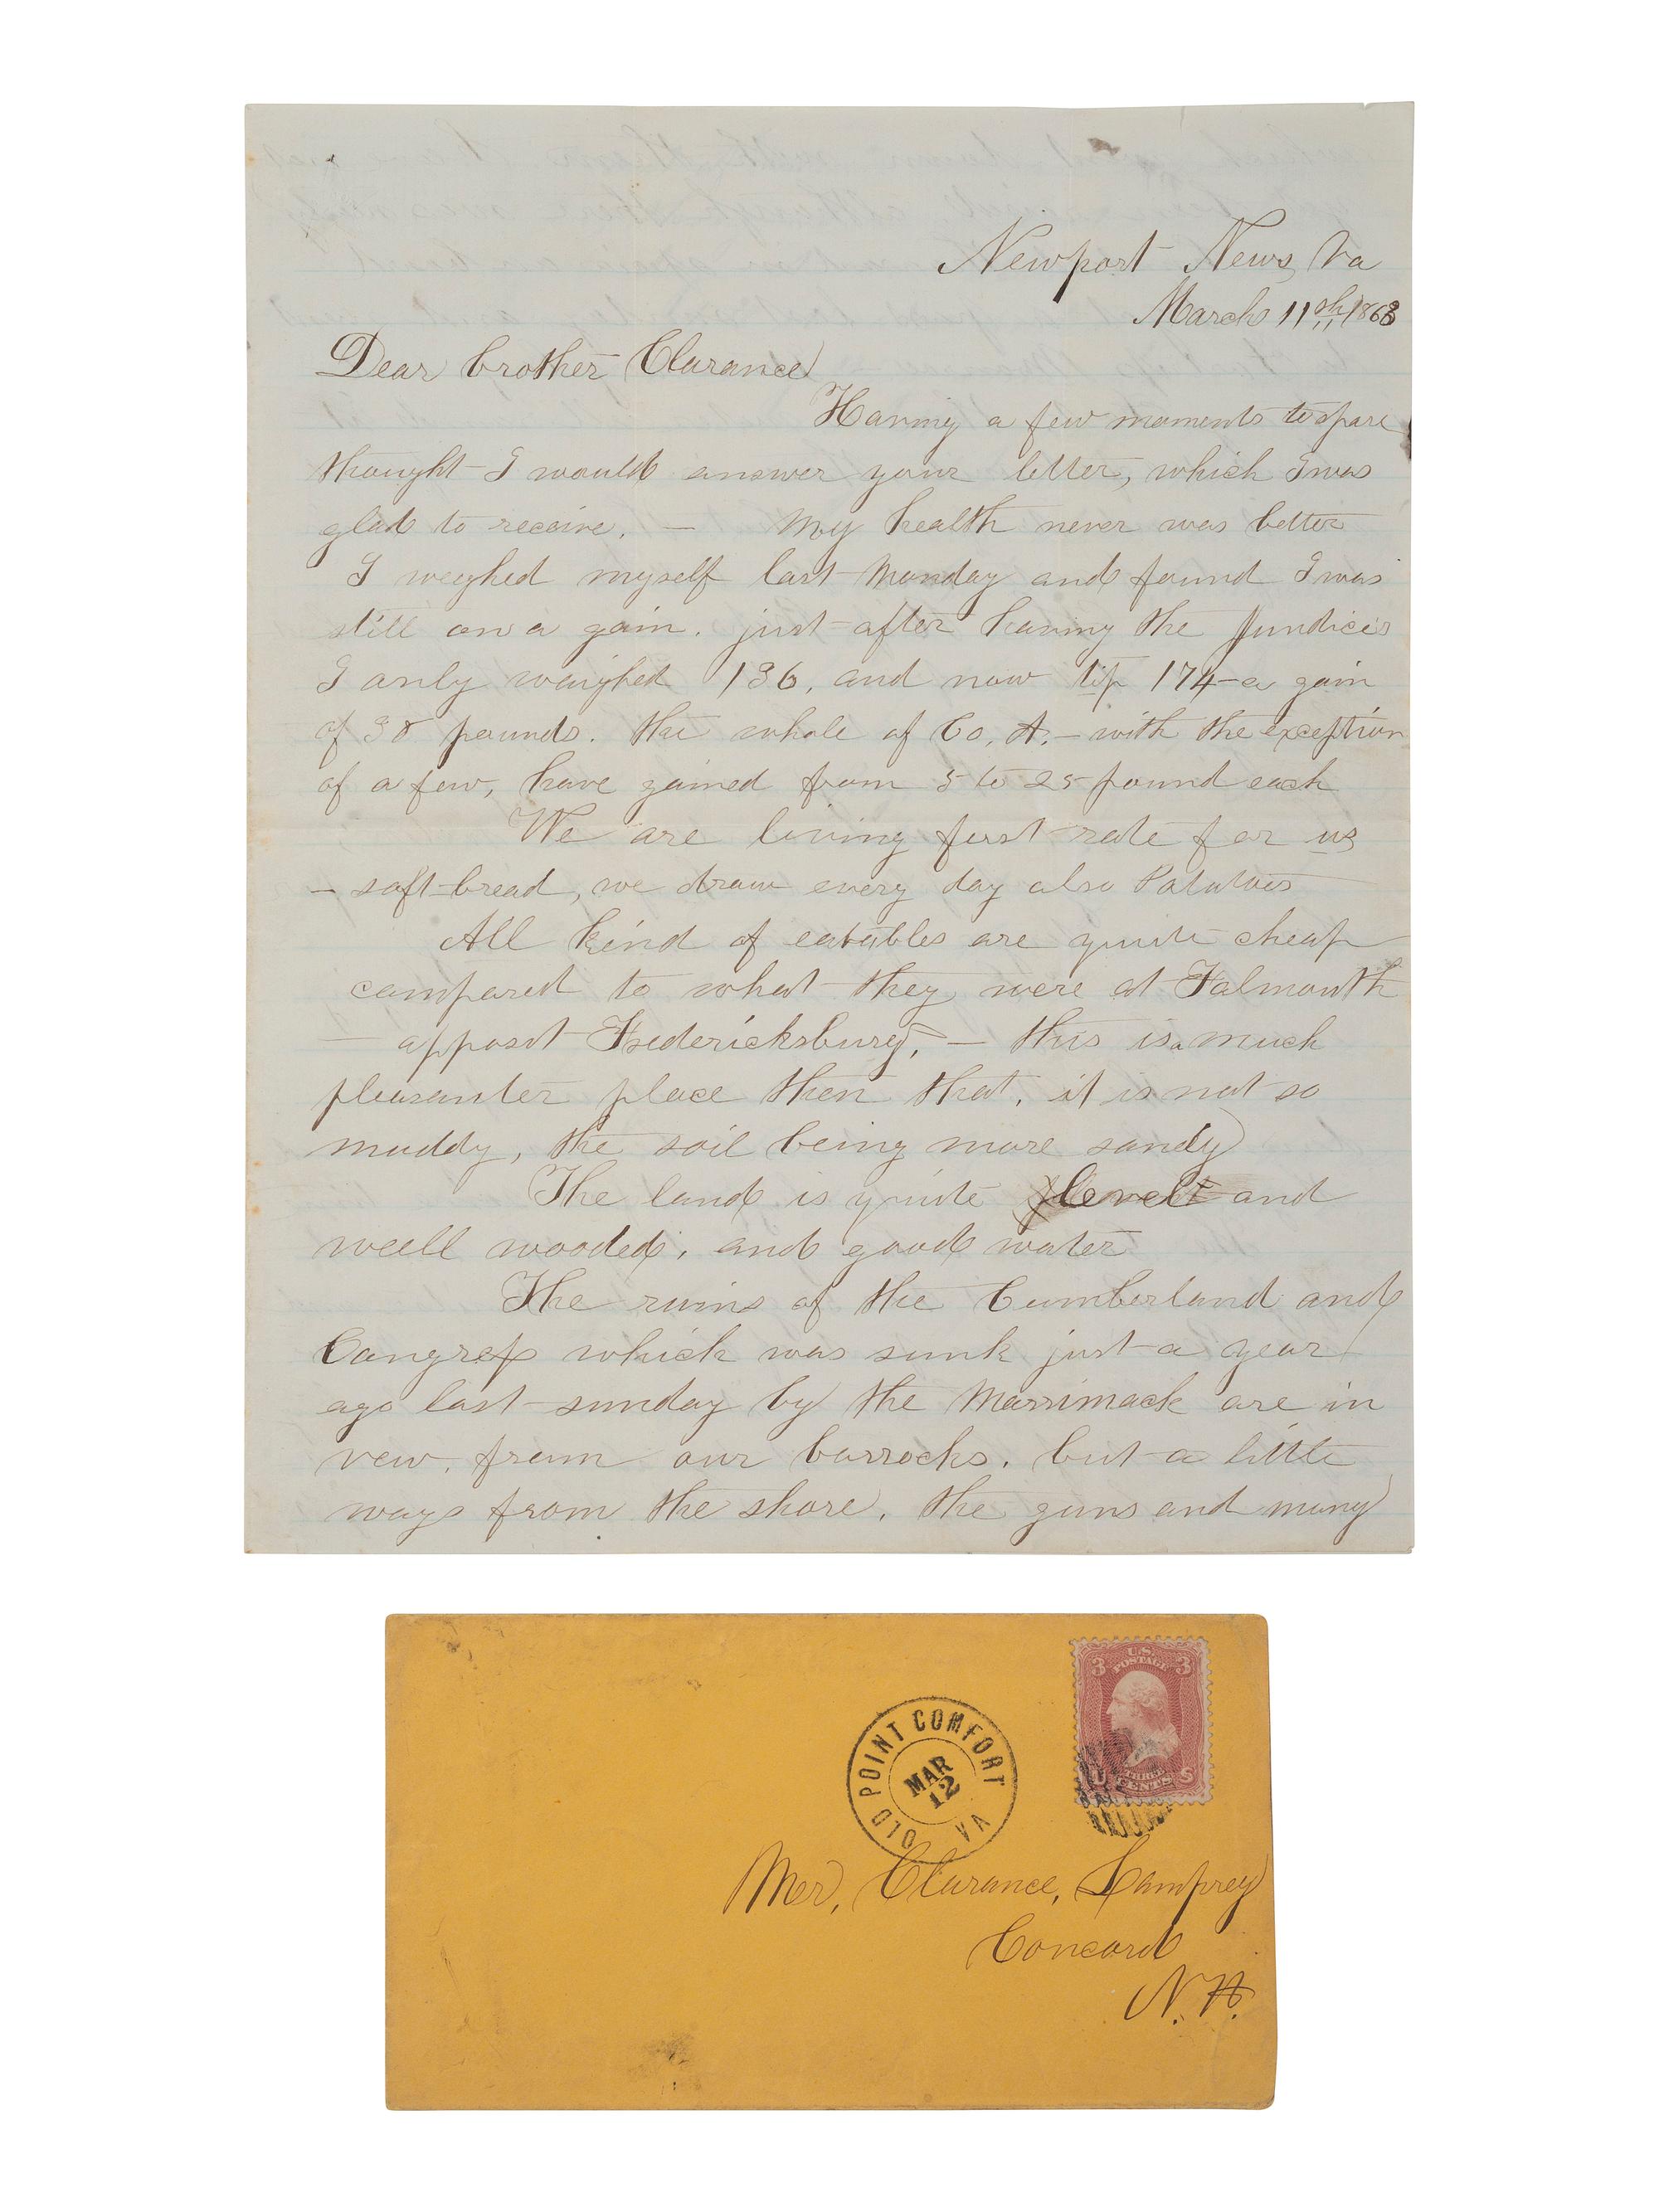 Newport News, Va
March 11th 1863
Dear brother Clarance
Having a few moments to spare
thought I would answer your letter, which I was
glad to receive. — My health never was better
I weghed myself last Monday and found I was
still on a gain. just after having the Jundices
I only weighed 136, and now tip 174 - a gain
of 38 pounds. the whole of Co. A. - with the exception
of a few, have gained from 5 to 25 pound each
We are living furst rate for us
- soft bread, we draw every day also Potatoes
All kind of eatables are quite cheap
compared to what they were at Falmouth
— apposit Fredericksburg, — this is a much
pleasanter place then that, it is not so
muddy, the soil being more sandy
The land is quite level and
well wooded, and good water
The ruins of the Cumberland and
Congress which was sunk just a year
ago last sunday by the Marrimack are in
vew, from our barrocks. but a little
ways from the shore, the guns and many
U.S.
POSTAGE
3 3
THREE
CENTS
U S
OLD POINT COMFORT
VA
MAR
12
Mr, Clarance, Lamprey
Concord
N. H.